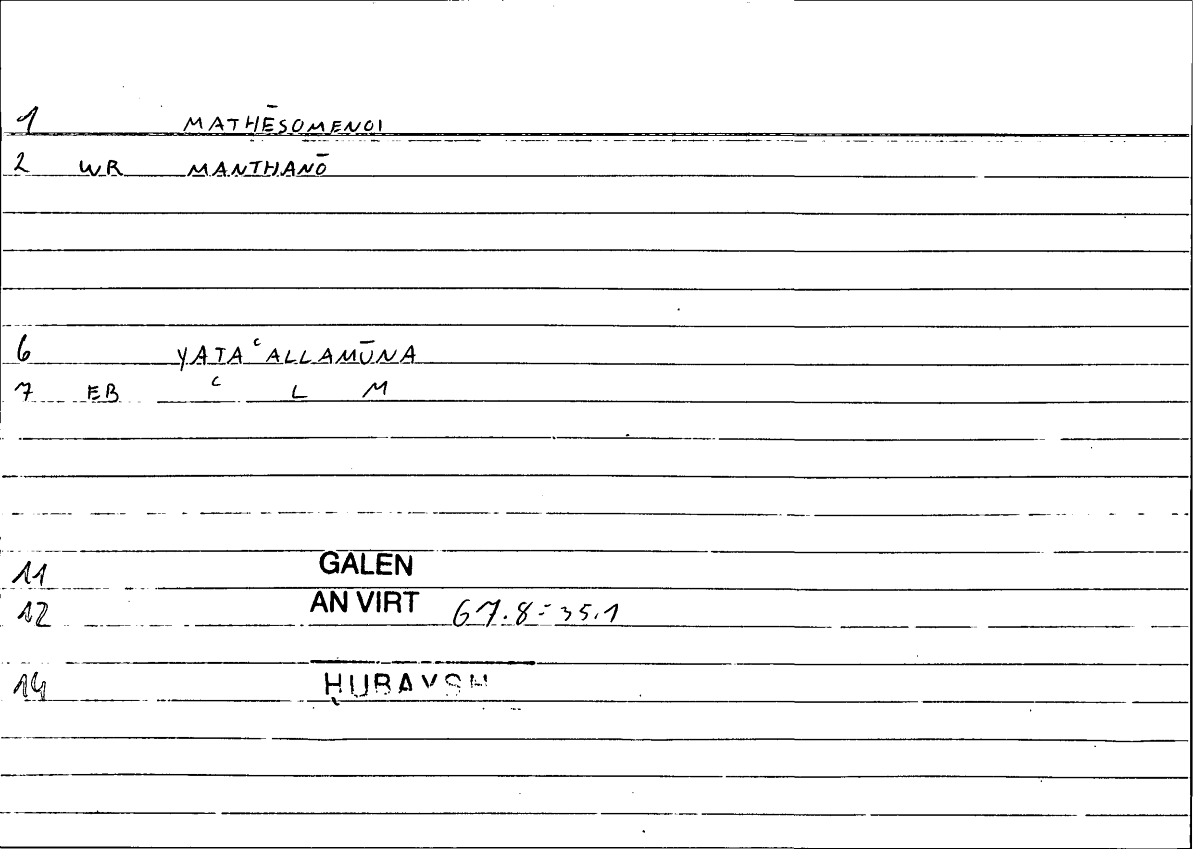 1 MATHĒSOMENOI
2 WR MANTHANŌ
6 YATAʿALLAMŪNA
7 EB ʿ L M
11 GALEN
12 AN VIRT 67.8=35.1
14 ḤUBAYSH